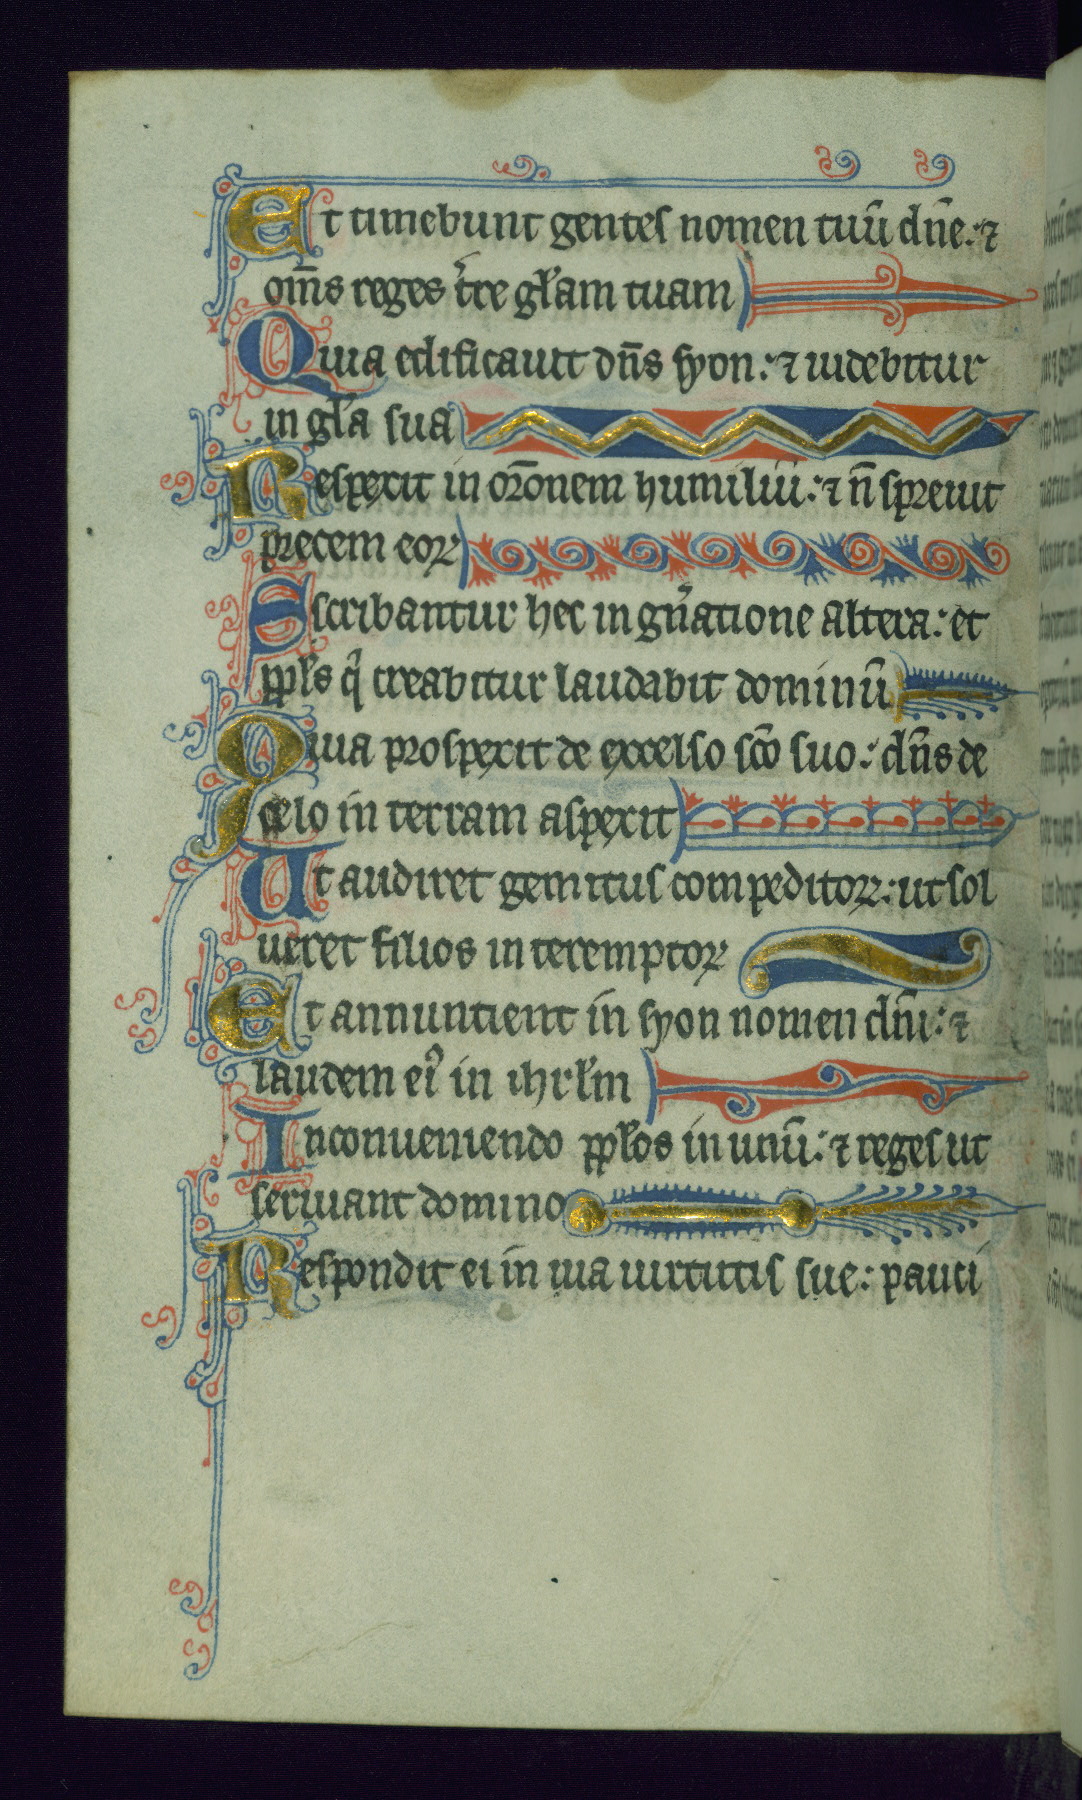 Et timebunt gentes nomen tuū dn̄e. ⁊
om̄s reges t̄re gl̄am tuam
Quia edificauit dn̄s syon: ⁊ uidebitur
in gl̄a sua
Respexit in or̄onem humiliū: ⁊ n̄ spreuit
precem eoꝝ
Scribantur hec in gn̄atione altera: et
ppl̄s q̄ creabitur laudabit dominū
Quia prospexit de excelso sc̄o suo: dn̄s de
celo in terram aspexit
Ut audiret gemitus compeditoꝝ: ut sol
ueret filios interemptoꝝ
Et annuntient in syon nomen dn̄i: ⁊
laudem eiꝰ in ihrl̄m
In conueniendo ppl̄os in unū: ⁊ reges ut
seruiant domino
Respondit ei in uia uirtutis sue: pauci